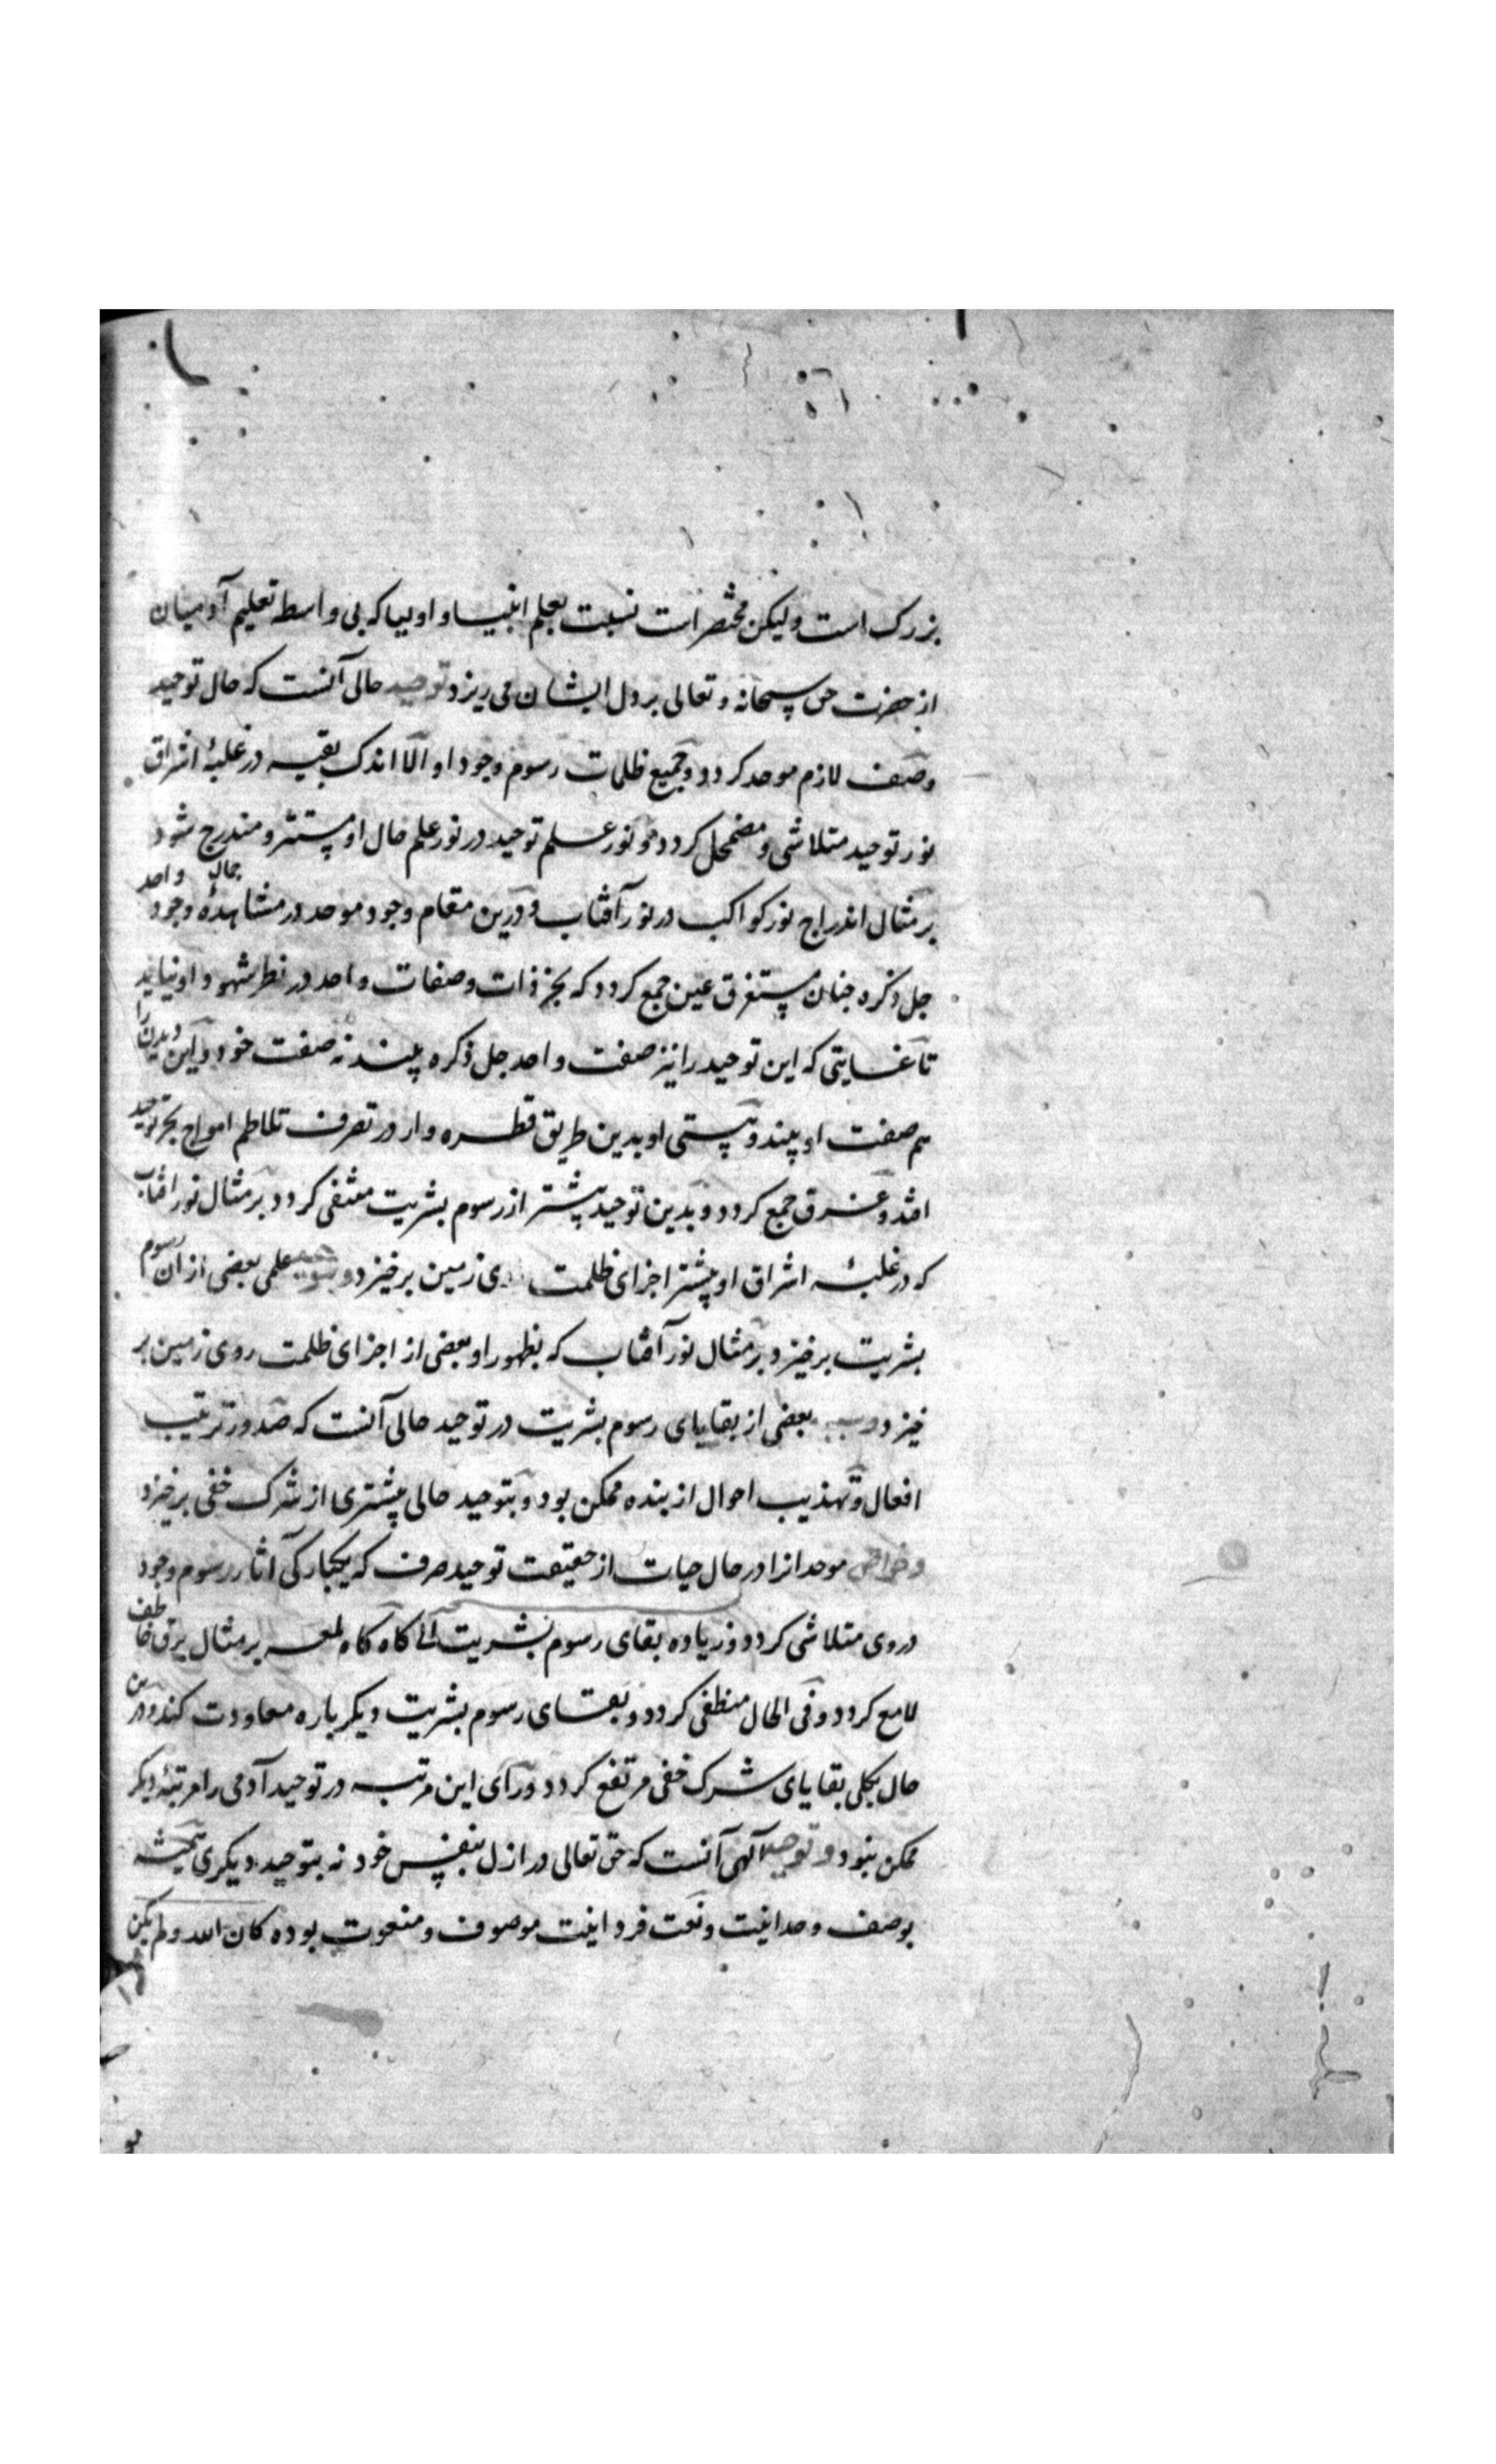 بزرک است ولیکن مختصر است نسبت بعلم انبیا و اولیا که بی واسطه تعلیم آدمیان
از حضرت حق سبحانه و تعالی بر دل ایشان می ریزد توحید حالی آنست که حال توحید
وصف لازم موحد کردد و جمیع ظلمات رسوم وجود او الا اندک بقیه در غلبۀ اشراق
نور توحید متلاشی و مضمحل کردد و نور علم توحید در نور علم حال او مستتر و مندرج شود
بر مثال اندراج نور کواکب در نور آفتاب و درین مقام وجود موحد در مشاهدۀ جمال وجود واحد
جل ذکره چنان مستغرق عین جمع کردد که بجز ذات و صفات واحد در نظر شهود او نیاید
تا غایتی که این توحید را نیز صفت واحد جل ذکره بیند نه صفت خود و این دیدن را
هم صفت او بیند و هستی او بدین طریق قطره وار در تصرف تلاطم امواج بحر توحید
افتد و غرق جمع کردد و بدین توحید بیشتر از رسوم بشریت منتفی کردد بر مثال نور افتاب
که در غلبۀ اشراق او بیشتر اجزای ظلمت روی زمین بر خیزد و بتوحید علمی بعضی از ان رسوم
بشریت بر خیزد بر مثال نور آفتاب که بظهور او بعضی از اجزای ظلمت روی زمین بر
خیزد و سبب بعضی از بقایای رسوم بشریت در توحید حالی آنست که صدور ترتیب
افعال و تهذیب احوال از بنده ممکن بود و بتوحید حالی بیشتری از شرک خفی بر خیزد
و خواص موحدانرا در حال حیات از حقیقت توحید صرف که یکبارکی اثار رسوم وجود
دروی متلاشی کردد و زیاده بقای رسوم بشریت الا کاه کاه لمعه بر مثال برق خاطف
لامع کردد و فی الحال منطفی کردد و بقای رسوم بشریت دیکر باره معاودت کند و درین
حال بکلی بقایای شرک خفی مرتفع کردد ورآی این مرتبه در توحید آدمی را مرتبۀ دیکر
ممکن نبود و توحید الهی آنست که حق تعالی در ازل بنفس خود نه بتوحید دیکری همیشه
بوصف وحدانیت و نعت فردانیت موصوف و منعوت بوده کان الله ولم یکن